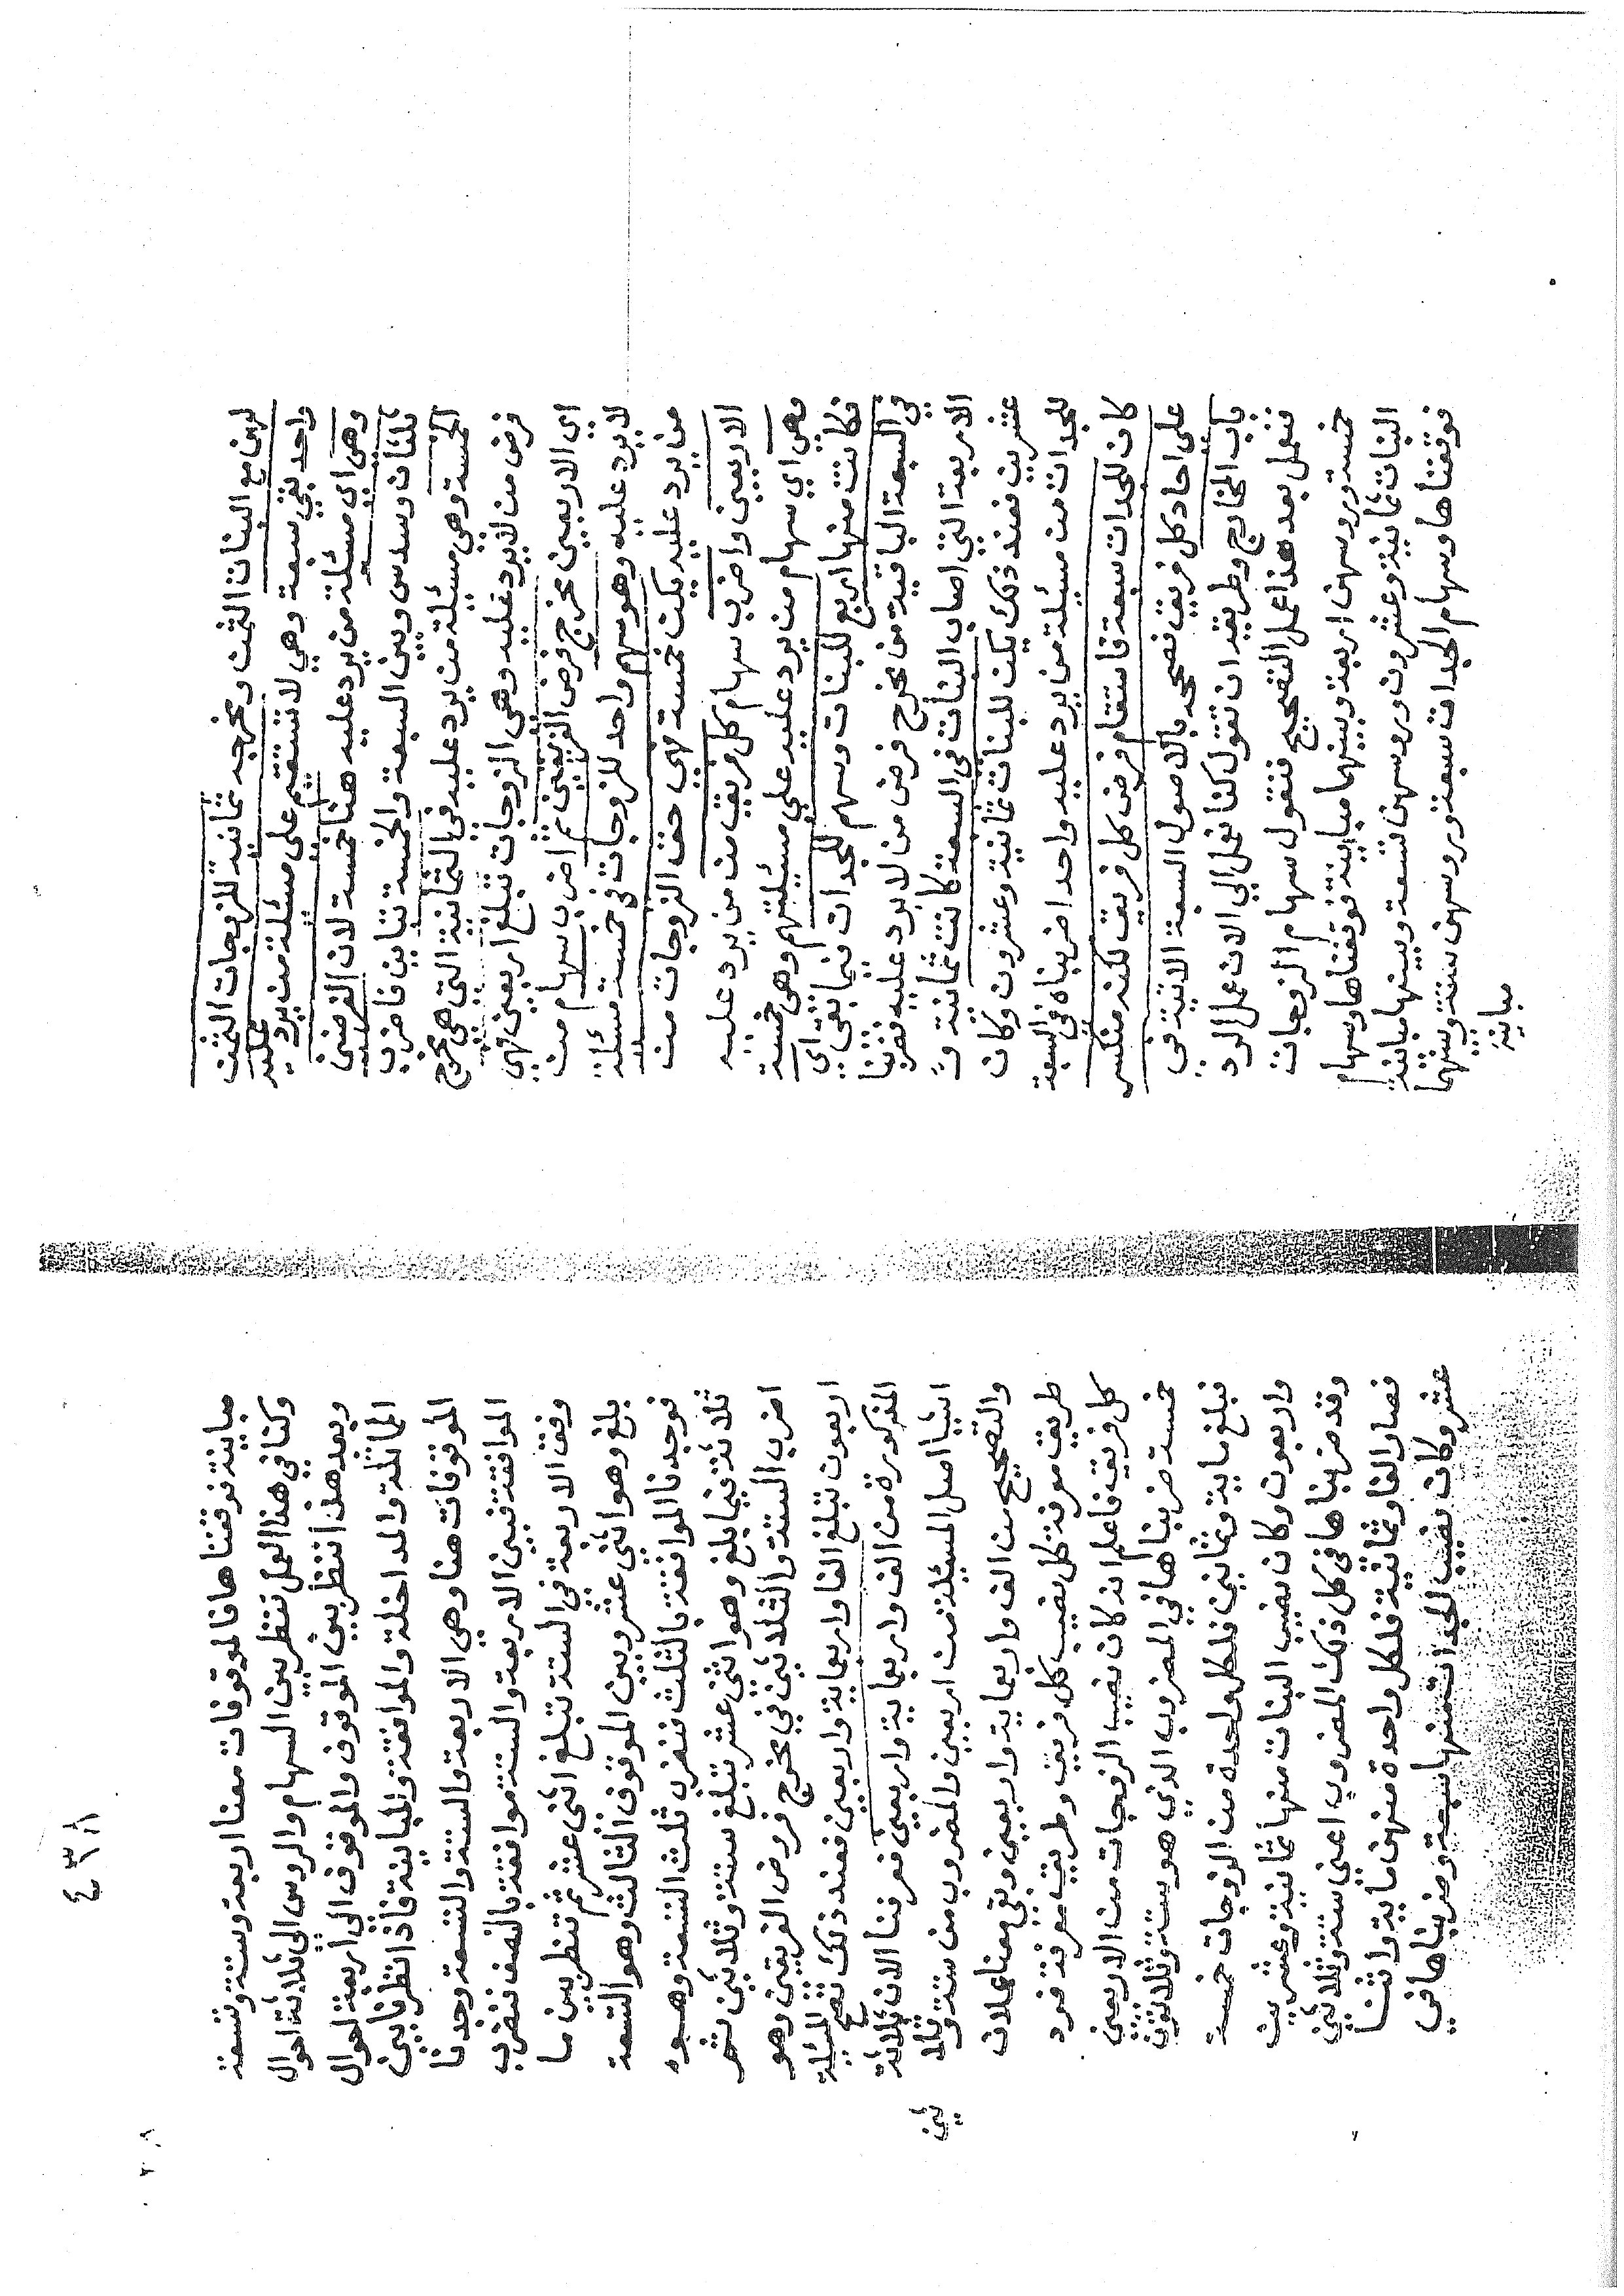 لهن مع البنات الثمن ومخرجه ثمانية للزوجات الثمن
واحد بقي سبعة وهي لا تستقيم على مسئلة من يرد عليه
وهي اي مسئلة من يرد عليه هنا خمسة لان الفرضين
ثلثان وسدس وبين السبعة والخمسة تباين فاضرب
الخمسة وهي مسئلة من يرد عليه في الثمانية التي هي مخرج
فرض من لا يرد عليه وهي الزوجات تبلغ اربعين فهي
اي الاربعين مخرج فرض الفريقين ثم اضرب سهام من
لا يرد عليه وهو سهم واحد للزوجات في خمسة مسئلة
من يرد عليه يكن خمسة فهي حق الزوجات من
الاربعين واضرب سهام كل فريق من من يرد عليه
وهي اي سهام من يرد عليه على مسئلتهم وهي خمسة
فكانت منها اربع للبنات وسهم للجدات فيما بقي اي
في السبعة الباقية من مخرج فرض من لا يرد عليه فضربنا
الاربعة التي اصاب البنات في السبعة كانت ثمانية و
عشرين فعند ذلك يكن للبنات ثمانية وعشرون وكان
للجدات من مسئلة من يرد عليه واحد اضربناه في السبعة
كان للجدات سبعة فاستقام فرض كل فريق لكنه منكسر
على احاد كل فريق فصححه بالاصول السبعة الاتية في
باب المخارج وطريقه ان تقول كنا نعمل الى الان عمل الرد
فنعمل بعد هذا عمل التصحيح فنقول سهام الزوجات
خمسة وروسهن اربعة وبينهما مباينة توقفناها وسهام
البنات ثمانية وعشرون وروسهن تسعة وبينهما مباينة
فوقفناها وسهام الجدات سبعة وروسهن ستة وبينهما
مباينة
٤٣٨
مباينة توقفناها فالموقوفات معنا اربعة وستة وتسعة
وكنا في هذا العمل ننظر بين السهام والروس الى ثلاثة احوال
وبعد هذا ننظر بين الموقوف والموقوف الى اربعة احوال
المماثلة والمداخلة والموافقة والمباينة فاذا نظرنا بين
الموقوفات هنا وهي الاربعة والستة والتسعة وجدنا
الموافقة فبين الاربعة والستة موافقة بالنصف فنضرب
وفق الاربعة في الستة تبلغ اثنى عشر ثم ننظر بين ما
بلغ وهو اثني عشر وبين الموقوف الثالث وهو التسعة
فوجدنا الموافقة بالثلث فنضرب ثلث التسعة وهو
ثلاثة فيما بلغ وهو اثنى عشر تبلغ ستة وثلاثين ثم
اضرب الستة والثلاثين في مخرج فرض الفريقين وهو
اربعون تبلغ الفا واربعماية واربعين فعند ذلك تصح المسئلة
المذكورة من الف واربعماية واربعين فعرفنا الان ثلاثة
اشيا اصل المسئلة من اربعين والمضروب من ستة وثلاثين
والتصحيح من الف واربعماية واربعين وبقي معنا عملان
طريق معرفة كل نصيب كل فريق وطريق معرفة فرد
كل فريق فاعلم انه كان نصيب الزوجات من الاربعين
خمسة ضربناها في المضروب الذي هو ستة وثلاثون
فبلغ ماية وثمانين فلكل واحدة من الزوجات خمسة
واربعون وكان نصيب البنات منها ثمانية وعشرين
وقد ضربناها في كل ذلك المضروب اعني ستة وثلاثين
فصار الفا وثمانية فلكل واحدة منهن ماية واثنا
عشر وكان نصيب الجدات منها سبعة وضربناها في